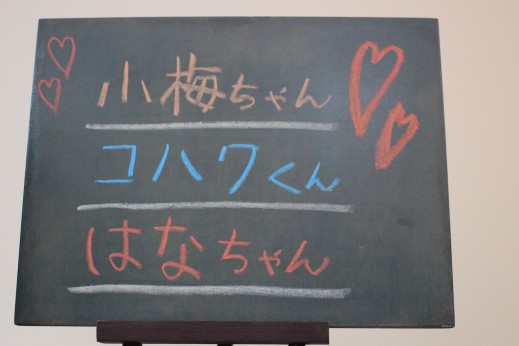 小梅ちゃん
コハワくん
はなちゃん